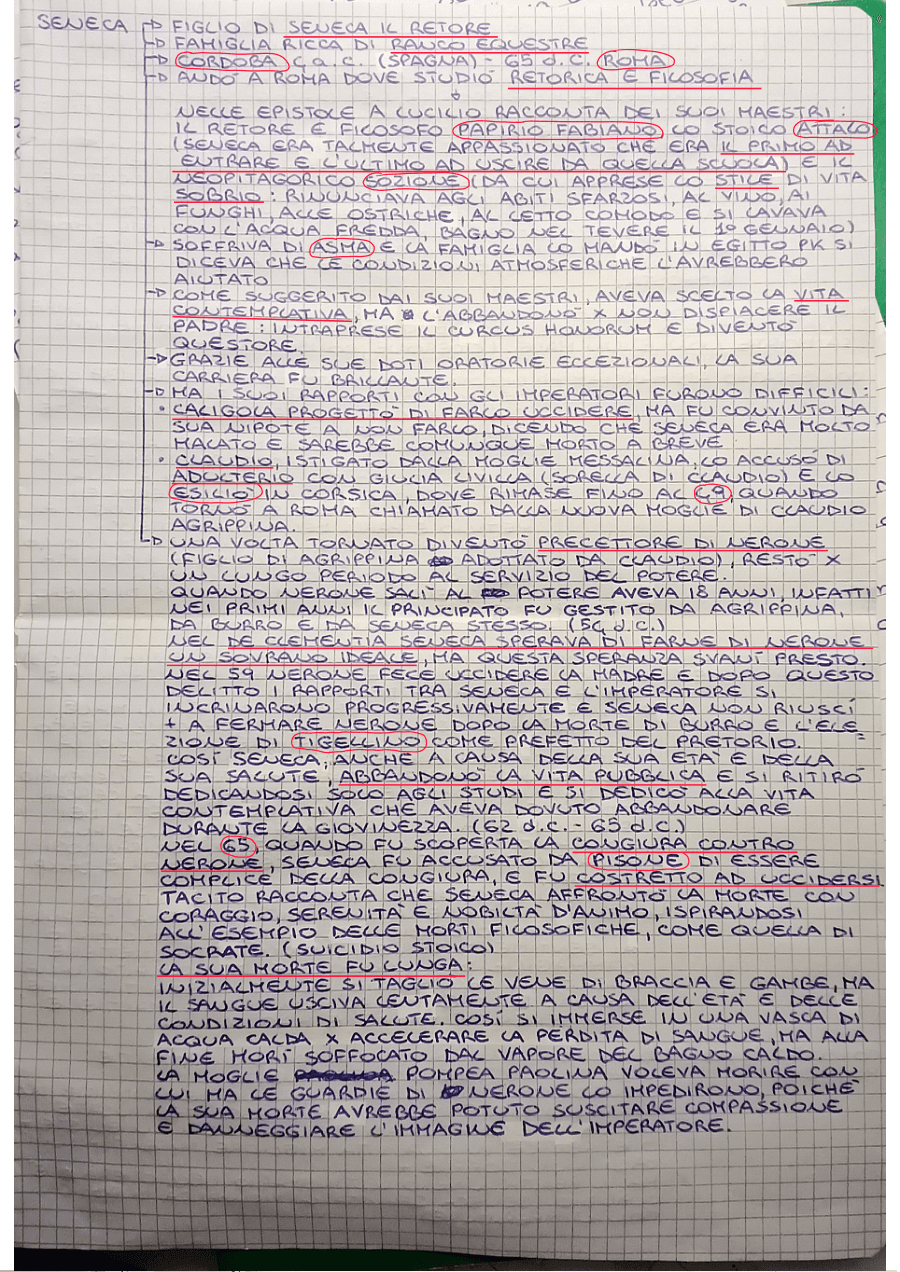 SENECA → FIGLIO DI SENECA IL RETORE
→ FAMIGLIA RICCA DI RANGO EQUESTRE
→ CORDOBA 4 a.c. (SPAGNA) - 65 d.c. ROMA
→ ANDÒ A ROMA DOVE STUDIÒ RETORICA E FILOSOFIA
↓
NELLE EPISTOLE A LUCILIO RACCONTA DEI SUOI MAESTRI:
IL RETORE E FILOSOFO PAPIRIO FABIANO, LO STOICO ATTALO
(SENECA ERA TALMENTE APPASSIONATO CHE ERA IL PRIMO AD
ENTRARE E L'ULTIMO AD USCIRE DA QUELLA SCUOLA) E IL
NEOPITAGORICO SOZIONE (DA CUI APPRESE LO STILE DI VITA
SOBRIO: RINUNCIAVA AGLI ABITI SFARZOSI, AL VINO, AI
FUNGHI, ALLE OSTRICHE, AL LETTO COMODO E SI LAVAVA
CON L'ACQUA FREDDA, BAGNO NEL TEVERE IL 1º GENNAIO)
→ SOFFRIVA DI ASMA E LA FAMIGLIA LO MANDÒ IN EGITTO PK SI
DICEVA CHE LE CONDIZIONI ATMOSFERICHE L'AVREBBERO
AIUTATO
→ COME SUGGERITO DAI SUOI MAESTRI, AVEVA SCELTO LA VITA
CONTEMPLATIVA, MA L'ABBANDONÒ X NON DISPIACERE IL
PADRE: INTRAPRESE IL CURCUS HONORUM E DIVENTÒ
QUESTORE.
→ GRAZIE ALLE SUE DOTI ORATORIE ECCEZIONALI, LA SUA
CARRIERA FU BRILLANTE.
→ MA I SUOI RAPPORTI CON GLI IMPERATORI FURONO DIFFICILI:
• CALIGOLA PROGETTÒ DI FARLO UCCIDERE, MA FU CONVINTO DA
SUA NIPOTE A NON FARLO, DICENDO CHE SENECA ERA MOLTO
MALATO E SAREBBE COMUNQUE MORTO A BREVE
• CLAUDIO, ISTIGATO DALLA MOGLIE MESSALINA, LO ACCUSÒ DI
ADULTERIO CON GIULIA LIVILLA (SORELLA DI CLAUDIO) E LO
ESILIÒ IN CORSICA, DOVE RIMASE FINO AL 49, QUANDO
TORNÒ A ROMA CHIAMATO DALLA NUOVA MOGLIE DI CLAUDIO
AGRIPPINA.
→ UNA VOLTA TORNATO DIVENTÒ PRECETTORE DI NERONE
(FIGLIO DI AGRIPPINA ADOTTATO DA CLAUDIO), RESTÒ X
UN LUNGO PERIODO AL SERVIZIO DEL POTERE.
QUANDO NERONE SALÌ AL POTERE AVEVA 18 ANNI, INFATTI
NEI PRIMI ANNI IL PRINCIPATO FU GESTITO DA AGRIPPINA,
DA BURRO E DA SENECA STESSO. (54 d.c.)
NEL DE CLEMENTIA SENECA SPERAVA DI FARNE DI NERONE
UN SOVRANO IDEALE, MA QUESTA SPERANZA SVANÌ PRESTO.
NEL 59 NERONE FECE UCCIDERE LA MADRE E DOPO QUESTO
DELITTO I RAPPORTI TRA SENECA E L'IMPERATORE SI
INCRINARONO PROGRESSIVAMENTE E SENECA NON RIUSCÌ
+ A FERMARE NERONE DOPO LA MORTE DI BURRO E L'ELE=
ZIONE DI TIGELLINO COME PREFETTO DEL PRETORIO.
COSÌ SENECA, ANCHE A CAUSA DELLA SUA ETÀ E DELLA
SUA SALUTE, ABBANDONÒ LA VITA PUBBLICA E SI RITIRÒ
DEDICANDOSI SOLO AGLI STUDI E SI DEDICÒ ALLA VITA
CONTEMPLATIVA CHE AVEVA DOVUTO ABBANDONARE
DURANTE LA GIOVINEZZA. (62 d.c. - 65 d.c.)
NEL 65, QUANDO FU SCOPERTA LA CONGIURA CONTRO
NERONE, SENECA FU ACCUSATO DA PISONE DI ESSERE
COMPLICE DELLA CONGIURA, E FU COSTRETTO AD UCCIDERSI
TACITO RACCONTA CHE SENECA AFFRONTÒ LA MORTE CON
CORAGGIO, SERENITÀ E NOBILTÀ D'ANIMO, ISPIRANDOSI
ALL'ESEMPIO DELLE MORTI FILOSOFICHE, COME QUELLA DI
SOCRATE. (SUICIDIO STOICO)
LA SUA MORTE FU LUNGA:
INIZIALMENTE SI TAGLIÒ LE VENE DI BRACCIA E GAMBE, MA
IL SANGUE USCIVA LENTAMENTE A CAUSA DELL'ETÀ E DELLE
CONDIZIONI DI SALUTE. COSÌ SI IMMERSE IN UNA VASCA DI
ACQUA CALDA X ACCELERARE LA PERDITA DI SANGUE, MA ALLA
FINE MORÌ SOFFOCATO DAL VAPORE DEL BAGNO CALDO.
LA MOGLIE POMPEA PAOLINA VOLEVA MORIRE CON
LUI MA LE GUARDIE DI NERONE LO IMPEDIRONO, POICHÈ
LA SUA MORTE AVREBBE POTUTO SUSCITARE COMPASSIONE
E DANNEGGIARE L'IMMAGINE DELL'IMPERATORE.